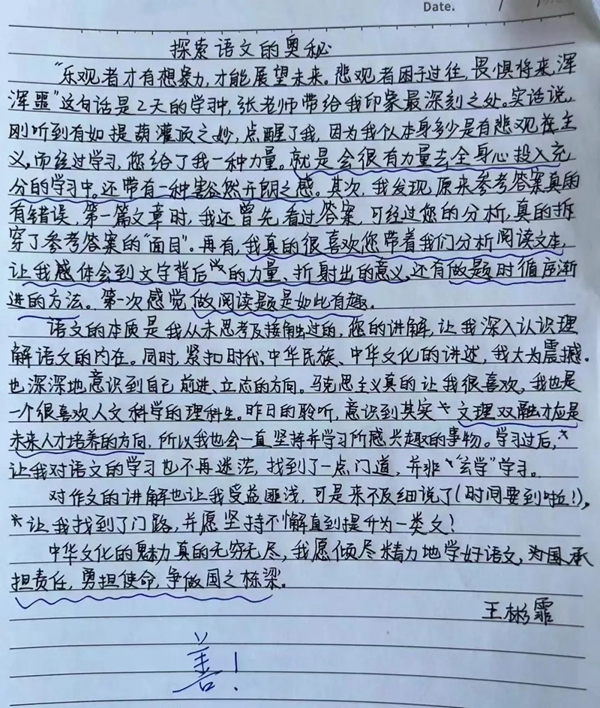 Date.
探索语文的奥秘
“乐观者才有想象力,才能展望未来,悲观者困于过往,畏惧将来,浑
浑噩”这句话是2天的学习中,张老师带给我印象最深刻之处。实话说,
刚听到有如提葫灌顶之妙,点醒了我,因为我似本身多少是有悲观在主
义,而经过学习,您给了我一种力量,就是会很有力量去全身心投入充
分的学习中,还带有一种豁然开朗之感。其次,我发现,原来参考答案真的
有错误,第一篇文章时,我还曾先看过答案,可经过您的分析,真的拆
穿了参考答案的“面目”。再有,我真的很喜欢您带着我们分析阅读文本,
让我感体会到文字背后的力量、折射出的意义,还有做题时循序渐
进的方法。第一次感觉做阅读题是如此有趣。
语文的本质是我从未思考及接触过的,您的讲解,让我深入认识理
解语文的内在。同时,紧扣时代、中华民族、中华文化的讲述,我大为震撼。
也深深地意识到自己前进、立志的方向。马克思主义真的让我很喜欢,我也是
一个很喜欢人文科学的理科生。昨日的聆听,意识到其实文理双融才应是
未来人才培养的方向,所以我也会一直坚持并学习所感兴趣的事物。学习过后,
让我对语文的学习也不再迷茫,找到了一点门道,并非“玄学”学习。
对作文的讲解也让我受益匪浅,可是来不及细说了(时间要到啦!),
让我找到了门路,并愿坚持不懈直到提升为一类文!
中华文化的魅力真的无穷无尽,我愿倾尽精力地学好语文,为国承
担责任,勇担使命,争做国之栋梁。
王彬霏
善!